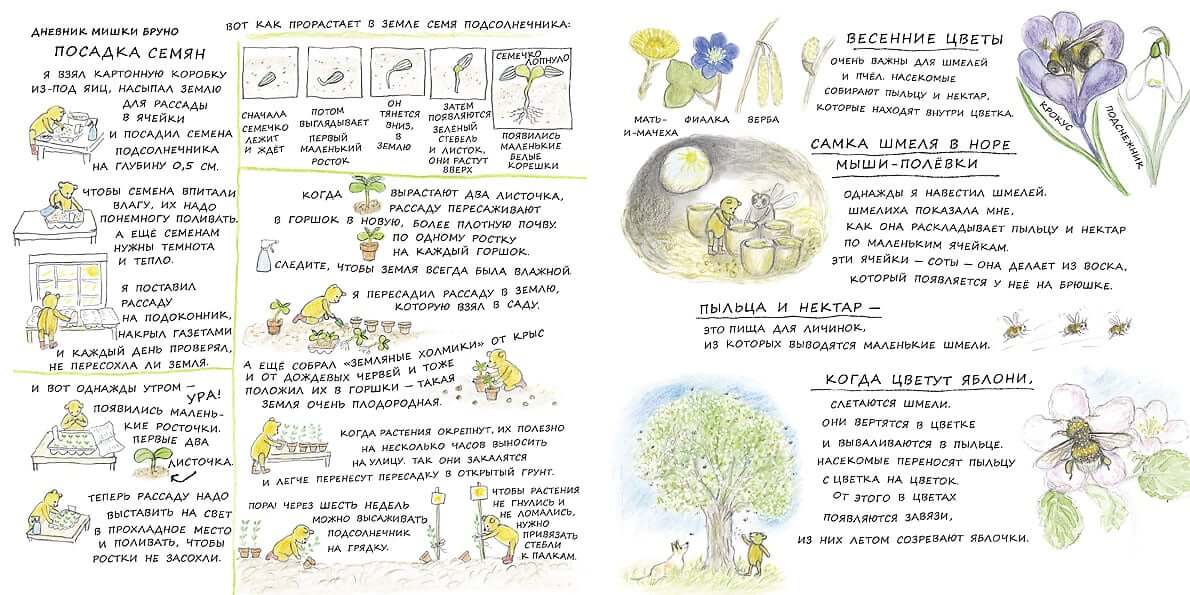 ДНЕВНИК МИШКИ БРУНО
ПОСАДКА СЕМЯН
Я ВЗЯЛ КАРТОННУЮ КОРОБКУ
ИЗ-ПОД ЯИЦ, НАСЫПАЛ ЗЕМЛЮ
ДЛЯ РАССАДЫ
В ЯЧЕЙКИ
И ПОСАДИЛ СЕМЕНА
ПОДСОЛНЕЧНИКА
НА ГЛУБИНУ 0,5 СМ.
ЧТОБЫ СЕМЕНА ВПИТАЛИ
ВЛАГУ, ИХ НАДО
ПОНЕМНОГУ ПОЛИВАТЬ.
А ЕЩЁ СЕМЕНАМ
НУЖНЫ ТЕМНОТА
И ТЕПЛО.
Я ПОСТАВИЛ
РАССАДУ
НА ПОДОКОННИК,
НАКРЫЛ ГАЗЕТАМИ
И КАЖДЫЙ ДЕНЬ ПРОВЕРЯЛ,
НЕ ПЕРЕСОХЛА ЛИ ЗЕМЛЯ.
И ВОТ ОДНАЖДЫ УТРОМ —
УРА!
ПОЯВИЛИСЬ МАЛЕНЬ-
КИЕ РОСТОЧКИ.
ПЕРВЫЕ ДВА
ЛИСТОЧКА.
ТЕПЕРЬ РАССАДУ НАДО
ВЫСТАВИТЬ НА СВЕТ
В ПРОХЛАДНОЕ МЕСТО
И ПОЛИВАТЬ, ЧТОБЫ
РОСТКИ НЕ ЗАСОХЛИ.
ВОТ КАК ПРОРАСТАЕТ В ЗЕМЛЕ СЕМЯ ПОДСОЛНЕЧНИКА:
СНАЧАЛА
СЕМЕЧКО
ЛЕЖИТ
И ЖДЁТ
ПОТОМ
ВЫГЛЯДЫВАЕТ
ПЕРВЫЙ
МАЛЕНЬКИЙ
РОСТОК
ОН
ТЯНЕТСЯ
ВНИЗ,
В
ЗЕМЛЮ
ЗАТЕМ
ПОЯВЛЯЮТСЯ
ЗЕЛЕНЫЙ
СТЕБЕЛЬ
И ЛИСТОК,
ОНИ РАСТУТ
ВВЕРХ
СЕМЕЧКО
ЛОПНУЛО
ПОЯВИЛИСЬ
МАЛЕНЬКИЕ
БЕЛЫЕ
КОРЕШКИ
КОГДА ВЫРАСТАЮТ ДВА ЛИСТОЧКА,
РАССАДУ ПЕРЕСАЖИВАЮТ
В ГОРШОК В НОВУЮ, БОЛЕЕ ПЛОТНУЮ ПОЧВУ.
ПО ОДНОМУ РОСТКУ
НА КАЖДЫЙ ГОРШОК.
СЛЕДИТЕ, ЧТОБЫ ЗЕМЛЯ ВСЕГДА БЫЛА ВЛАЖНОЙ.
Я ПЕРЕСАДИЛ РАССАДУ В ЗЕМЛЮ,
КОТОРУЮ ВЗЯЛ В САДУ.
А ЕЩЁ СОБРАЛ «ЗЕМЛЯНЫЕ ХОЛМИКИ» ОТ КРЫС
И ОТ ДОЖДЕВЫХ ЧЕРВЕЙ И ТОЖЕ
ПОЛОЖИЛ ИХ В ГОРШКИ — ТАКАЯ
ЗЕМЛЯ ОЧЕНЬ ПЛОДОРОДНАЯ.
КОГДА РАСТЕНИЯ ОКРЕПНУТ, ИХ ПОЛЕЗНО
НА НЕСКОЛЬКО ЧАСОВ ВЫНОСИТЬ
НА УЛИЦУ. ТАК ОНИ ЗАКАЛЯТСЯ
И ЛЕГЧЕ ПЕРЕНЕСУТ ПЕРЕСАДКУ В ОТКРЫТЫЙ ГРУНТ.
ПОРА! ЧЕРЕЗ ШЕСТЬ НЕДЕЛЬ
МОЖНО ВЫСАЖИВАТЬ
ПОДСОЛНЕЧНИК
НА ГРЯДКУ.
ЧТОБЫ РАСТЕНИЯ
НЕ ГНУЛИСЬ И
НЕ ЛОМАЛИСЬ,
НУЖНО
ПРИВЯЗАТЬ
СТЕБЛИ
К ПАЛКАМ.
МАТЬ-
И-МАЧЕХА
ФИАЛКА
ВЕРБА
ВЕСЕННИЕ ЦВЕТЫ
ОЧЕНЬ ВАЖНЫ ДЛЯ ШМЕЛЕЙ
И ПЧЁЛ. НАСЕКОМЫЕ
СОБИРАЮТ ПЫЛЬЦУ И НЕКТАР,
КОТОРЫЕ НАХОДЯТ ВНУТРИ ЦВЕТКА.
КРОКУС
ПОДСНЕЖНИК
САМКА ШМЕЛЯ В НОРЕ
МЫШИ-ПОЛЁВКИ
ОДНАЖДЫ Я НАВЕСТИЛ ШМЕЛЕЙ.
ШМЕЛИХА ПОКАЗАЛА МНЕ,
КАК ОНА РАСКЛАДЫВАЕТ ПЫЛЬЦУ И НЕКТАР
ПО МАЛЕНЬКИМ ЯЧЕЙКАМ.
ЭТИ ЯЧЕЙКИ — СОТЫ — ОНА ДЕЛАЕТ ИЗ ВОСКА,
КОТОРЫЙ ПОЯВЛЯЕТСЯ У НЕЁ НА БРЮШКЕ.
ПЫЛЬЦА И НЕКТАР —
ЭТО ПИЩА ДЛЯ ЛИЧИНОК,
ИЗ КОТОРЫХ ВЫВОДЯТСЯ МАЛЕНЬКИЕ ШМЕЛИ.
КОГДА ЦВЕТУТ ЯБЛОНИ,
СЛЕТАЮТСЯ ШМЕЛИ.
ОНИ ВЕРТЯТСЯ В ЦВЕТКЕ
И ВЫВАЛИВАЮТСЯ В ПЫЛЬЦЕ.
НАСЕКОМЫЕ ПЕРЕНОСЯТ ПЫЛЬЦУ
С ЦВЕТКА НА ЦВЕТОК.
ОТ ЭТОГО В ЦВЕТАХ
ПОЯВЛЯЮТСЯ ЗАВЯЗИ,
ИЗ НИХ ЛЕТОМ СОЗРЕВАЮТ ЯБЛОЧКИ.